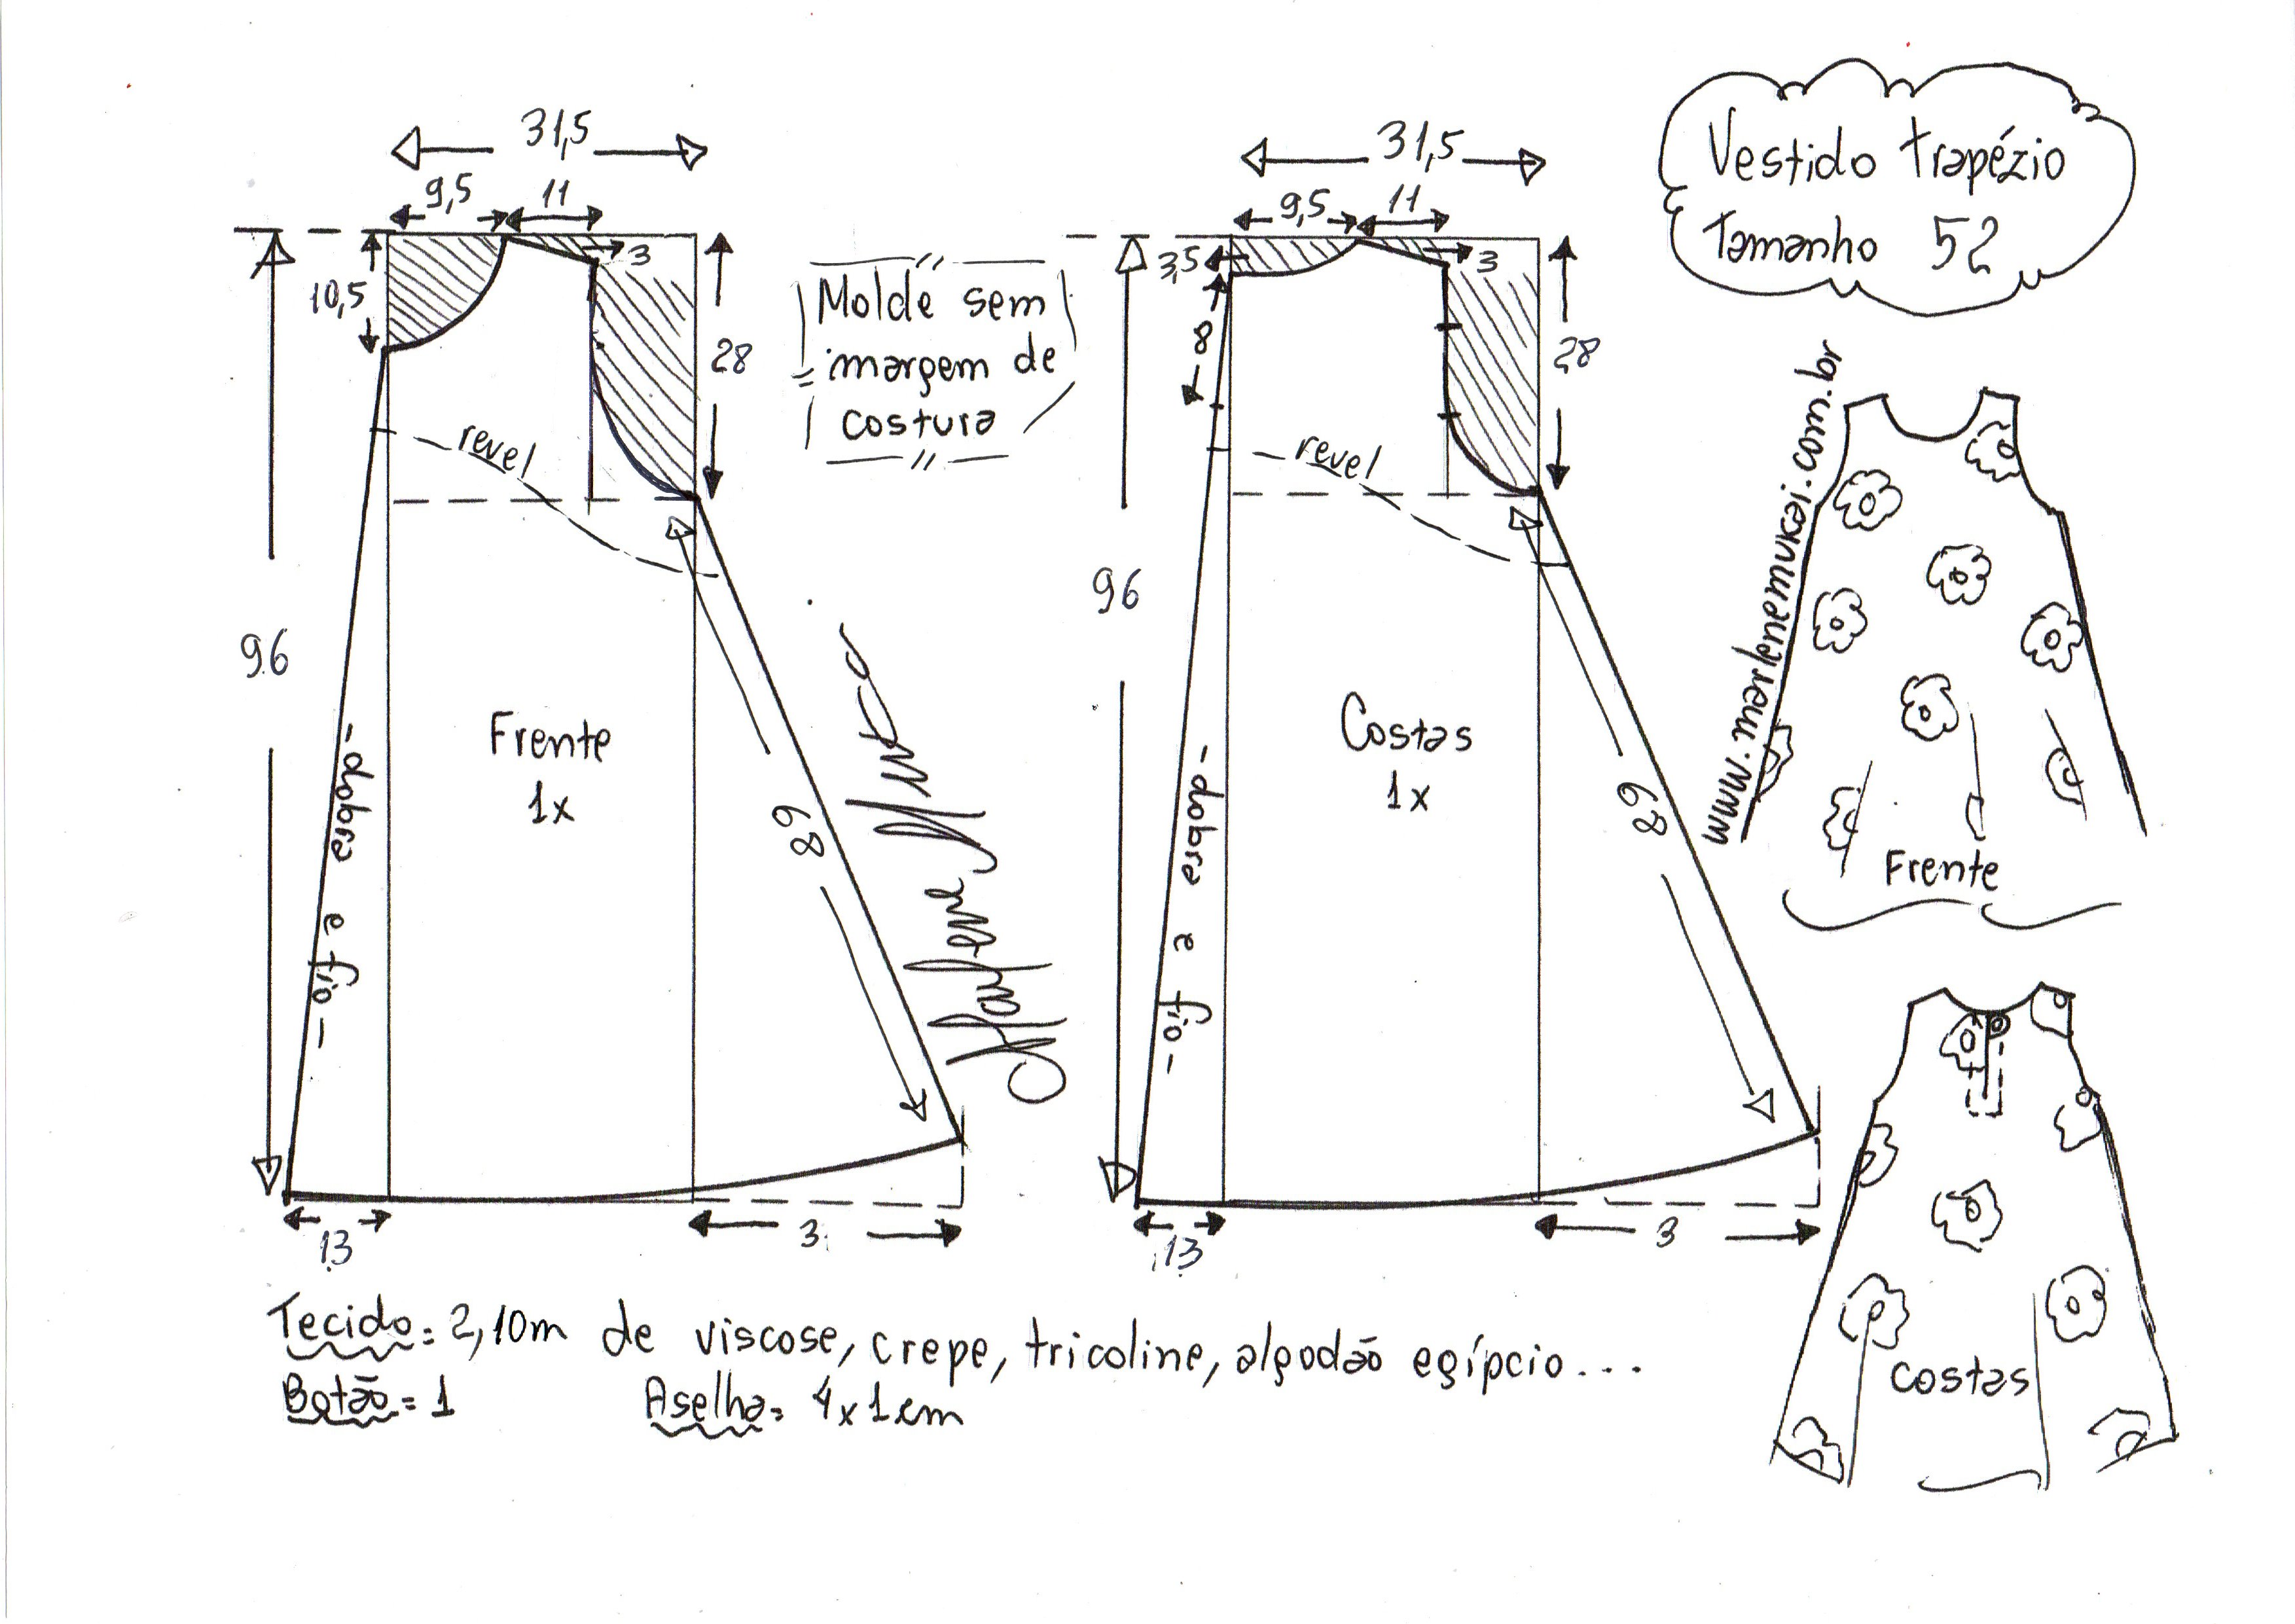 Vestido trapézio
Tamanho 52
31,5
9,5
11
3
10,5
28
96
revel
Frente
1x
- dobra e fio -
68
13
3
Molde sem
margem de
costura
Marlene Mukai
31,5
9,5
11
3
3,5
8
28
96
revel
Costas
1x
- dobra e fio -
68
13
3
www.marlenemukai.com.br
Frente
Costas
Tecido = 2,10m de viscose, crepe, tricoline, algodão egípcio...
Botão = 1
Aselha = 4x1cm